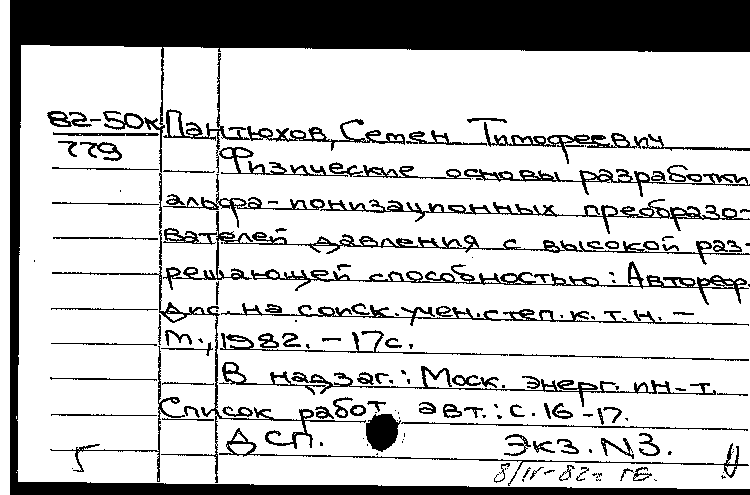 82-50к Пантюхов, Семен Тимофеевич
779 Физические основы разработки
альфа-ионизационных преобразо-
вателей давления с высокой раз-
решающей способностью: Автореф.
дис. на соиск. учен. степ. к. т. н. –
М., 1982. – 17с.
В надзаг.: Моск. энерг. ин-т.
Список работ авт.: с. 16-17.
ДСП. Экз. N3.
5 8/IV-82г